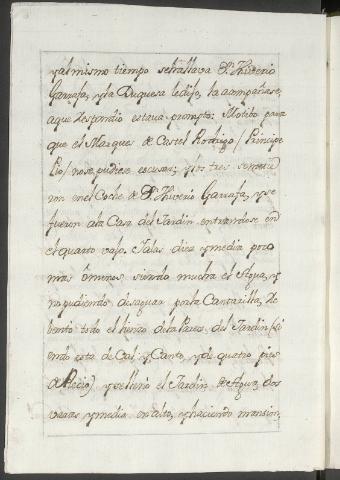 y al mismo tiempo se hallava Dn. Tiverio
Garrafa, y la Duquesa le dijo, la acompañase,
a que respondio estava prompto: Motibo para
que el Marques de Castel Rodrigo / Principe
Pio / no se pudiese escusar; y los tres se metie
ron en el Coche de Dn. Tiverio Garrafa, y se
fueron a la Casa del Jardin entrandose en
el quarto vajo. Ia las diez y media poco
mas ô menos siendo mucha el Agua, y
no pudiendo desaguar por la Cantarilla, Re
bento todo el lienzo de la Pared del Jardin (si
endo esta de Cal y Canto, y de quatro pies
de Recio) y se lleno el Jardin de Agua, dos
varas y media en alto, y haciendo mansion,